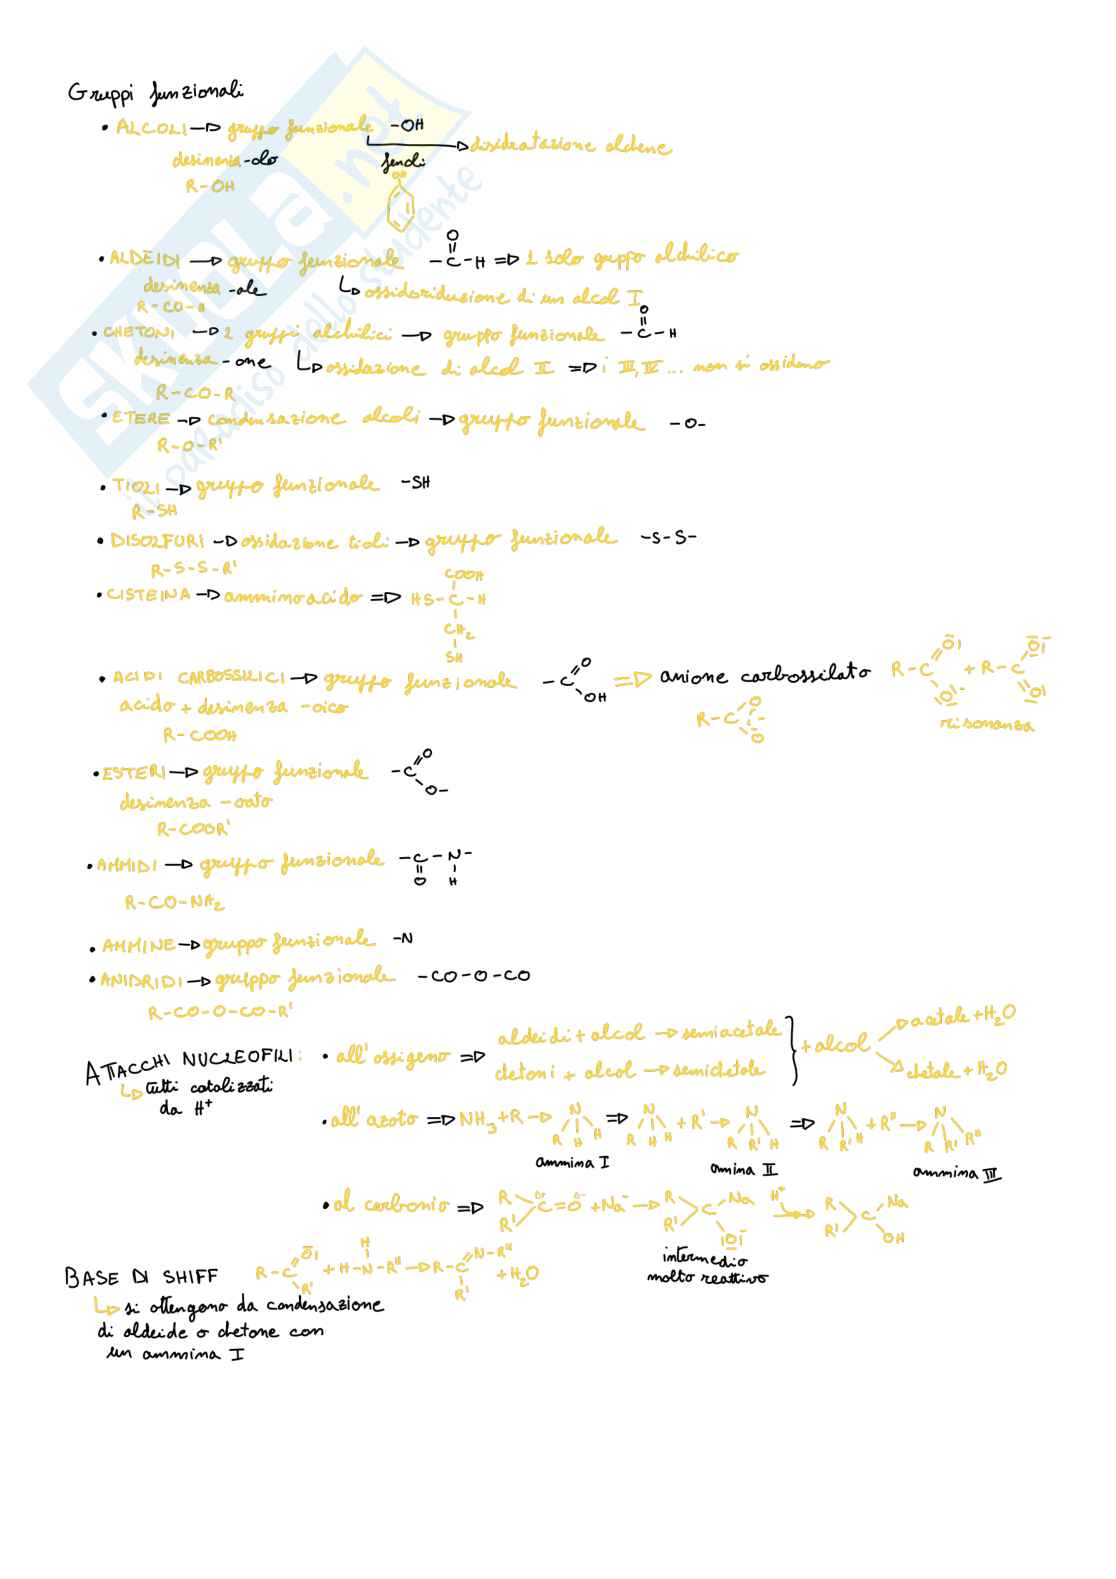 Gruppi funzionali
• ALCOLI → gruppo funzionale -OH → disidratazione alchene
desinenza -olo fenoli
R-OH OH
• ALDEIDI → gruppo funzionale -C-H ⇒ 1 solo gruppo alchilico
O
desinenza -ale ↳ ossidoriduzione di un alcol I
R-CO-H
• CHETONI → 2 gruppi alchilici → gruppo funzionale -C-H
O
desinenza -one ↳ ossidazione di alcol II ⇒ i III, IV ... non si ossidano
R-CO-R
• ETERE → condensazione alcoli → gruppo funzionale -O-
R-O-R'
• TIOLI → gruppo funzionale -SH
R-SH
• DISOLFURI → ossidazione tioli → gruppo funzionale -S-S-
R-S-S-R'
COOH
• CISTEINA → amminoacido ⇒ HS-C-H
CH2
SH
• ACIDI CARBOSSILICI → gruppo funzionale -C O OH ⇒ anione carbossilato R-C O O- + R-C O- O
acido + desinenza -oico R-C O O - risonanza
R-COOH
• ESTERI → gruppo funzionale -C O O-
desinenza -oato
R-COOR'
• AMMIDI → gruppo funzionale -C-N-
O H
R-CO-NA2
• AMMINE → gruppo funzionale -N
• ANIDRIDI → gruppo funzionale -CO-O-CO
R-CO-O-CO-R'
ATTACCHI NUCLEOFILI: • all'ossigeno ⇒ aldeidi + alcol → semiacetale } + alcol → acetale + H2O
chetoni + alcol → semichetale → chetale + H2O
↳ tutti catalizzati
da H+
• all'azoto ⇒ NH3 + R → N ⇒ N + R' → N ⇒ N + R'' → N
R H H R H H R R' H R R' H R R' R''
ammina I amina II ammina III
• al carbonio ⇒ R R' C=O + Na- → R R' C Na O- H+ → R R' C Na OH
intermedio
molto reattivo
BASE DI SHIFF R-C O R' + H-N-R'' H → R-C N-R'' R' + H2O
↳ si ottengono da condensazione
di aldeide o chetone con
un ammina I
SKUOLA.net
il paradiso dello studente